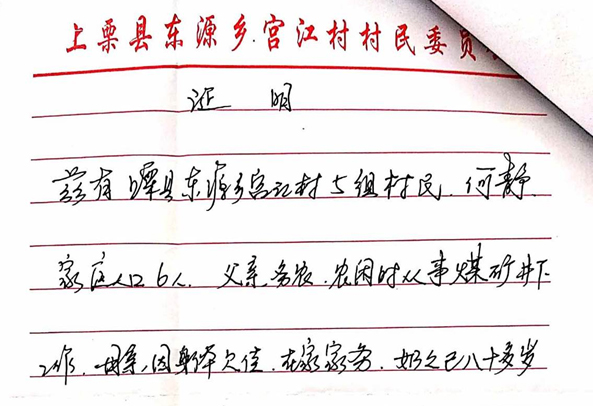 上栗县东源乡宫江村村民委员
证 明
兹有上栗县东源乡宫江村5组村民.何静
家庭人口6人. 父亲务农.农闲时从事煤矿井下
工作. 母亲,因身体欠佳.在家家务.奶奶已八十多岁